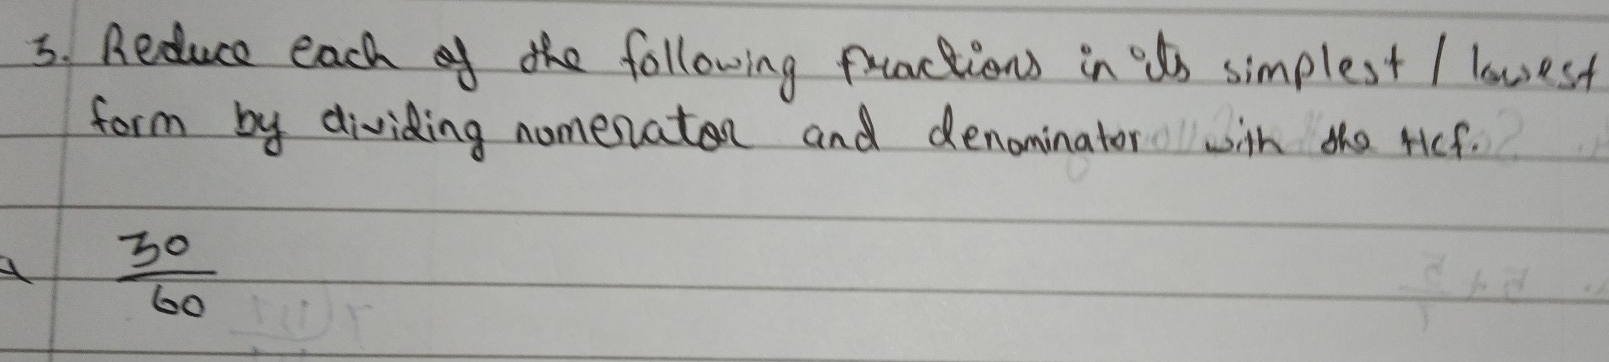 3. Reduce each of the following fractions in its simplest / lowest
form by dividing nomenator and denominator with the Hcf.
30
60